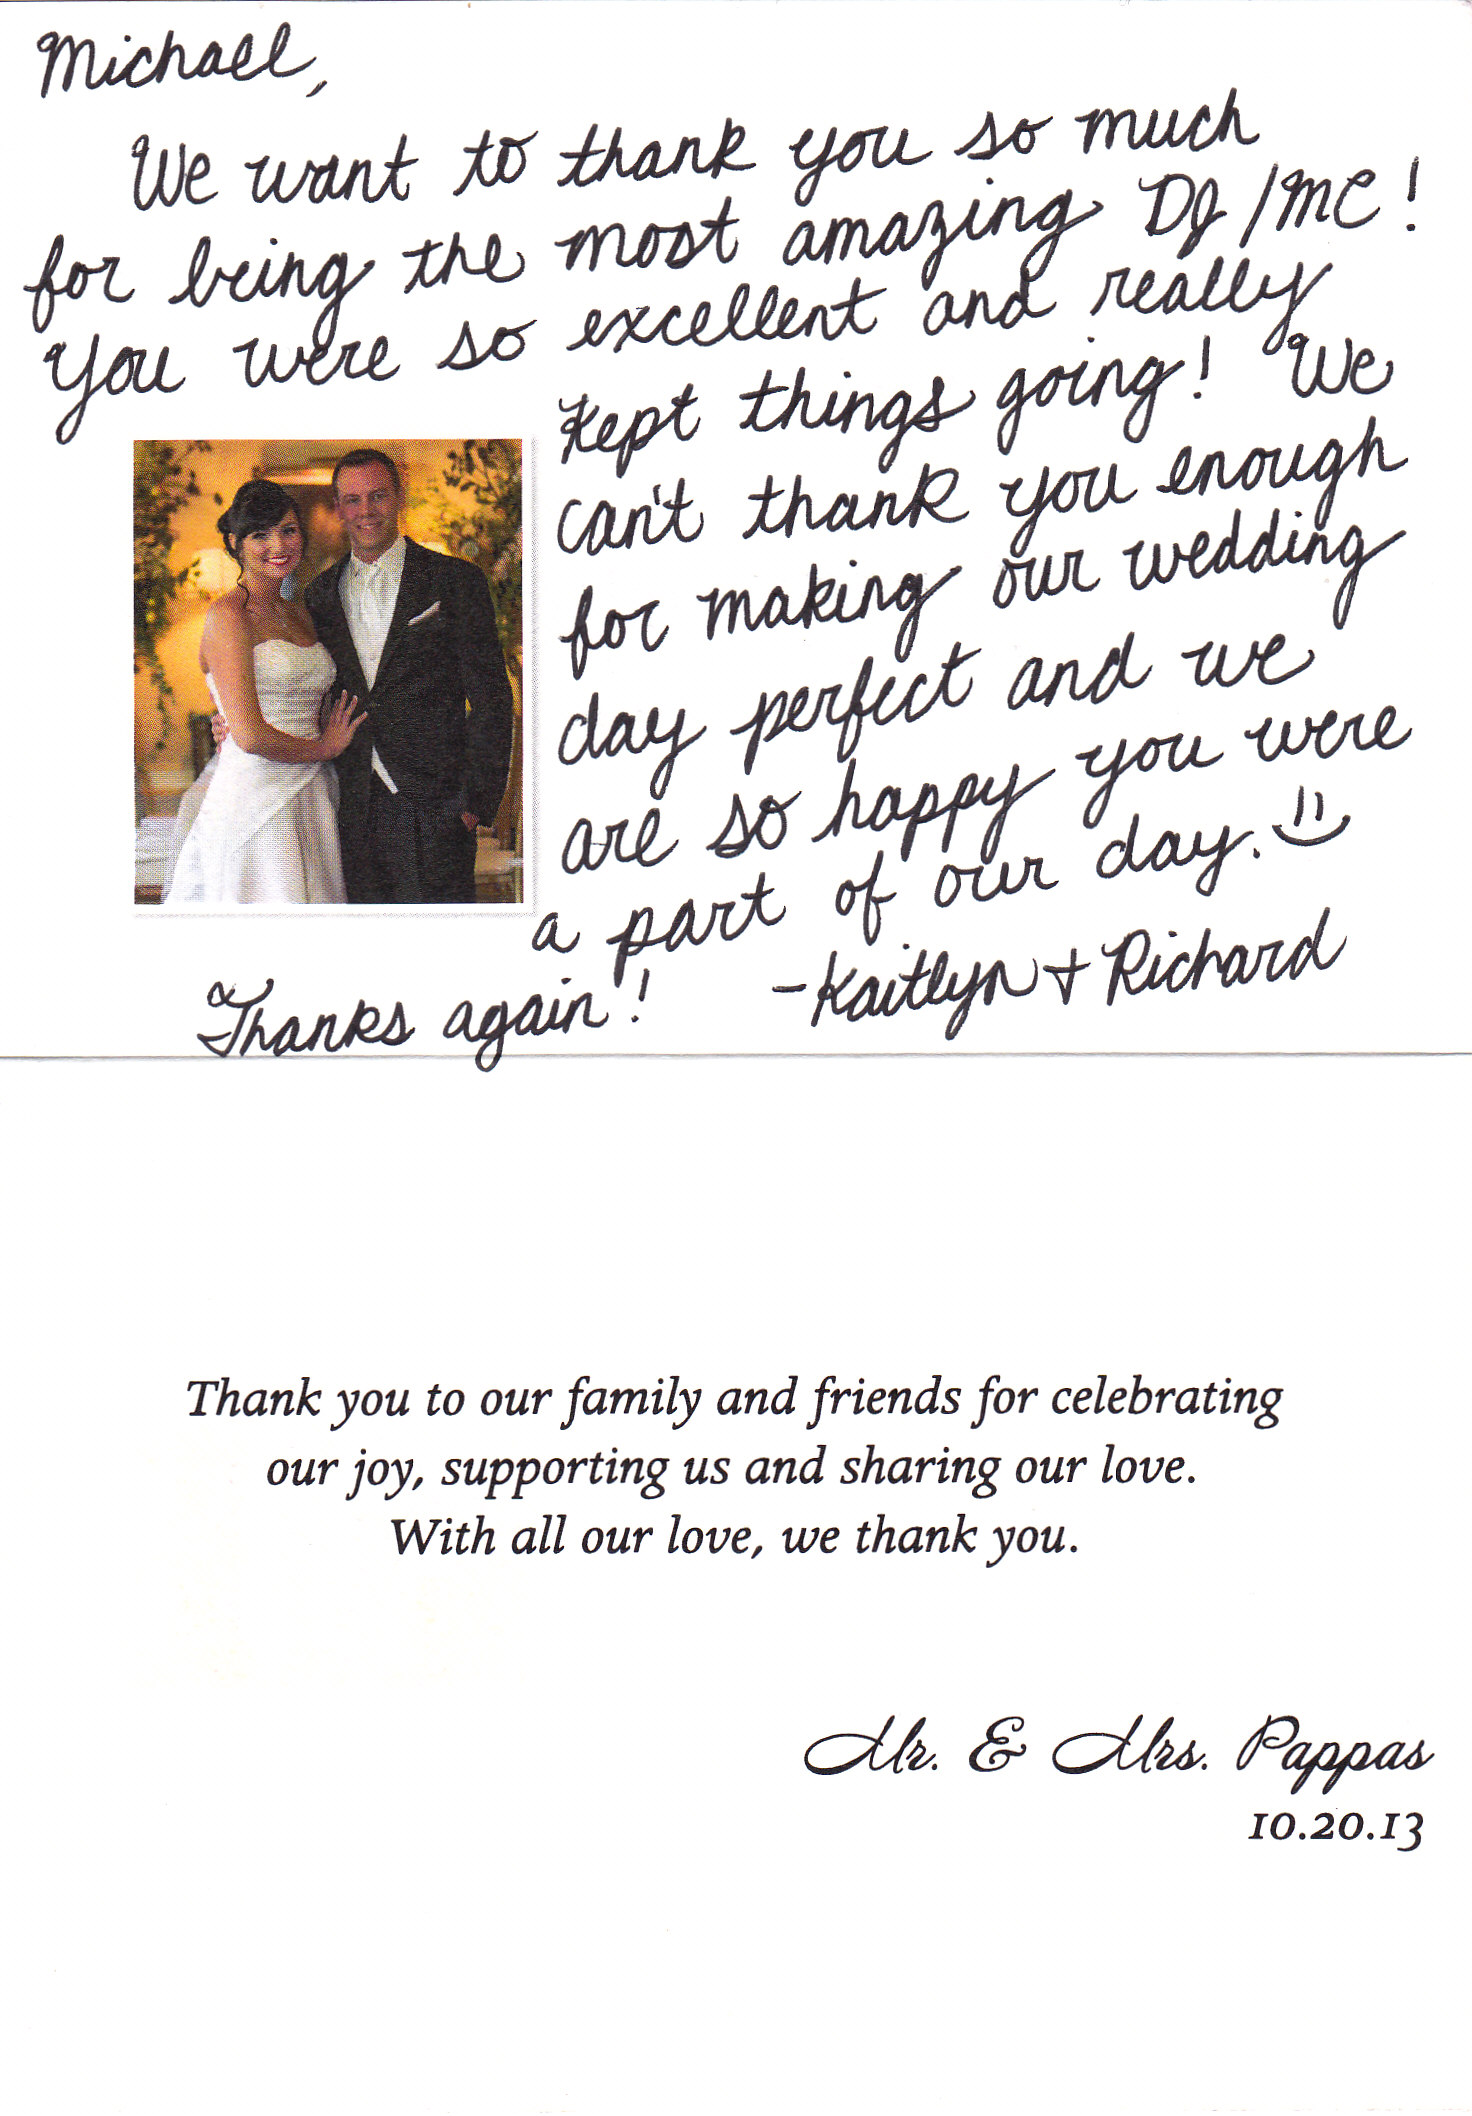 Michael,
We want to thank you so much
for being the most amazing DJ/MC!
You were so excellent and really
kept things going! We
can't thank you enough
for making our wedding
day perfect and we
are so happy you were
a part of our day.
Thanks again! -Kaitlyn + Richard
Thank you to our family and friends for celebrating
our joy, supporting us and sharing our love.
With all our love, we thank you.
Mr. & Mrs. Pappas
10.20.13